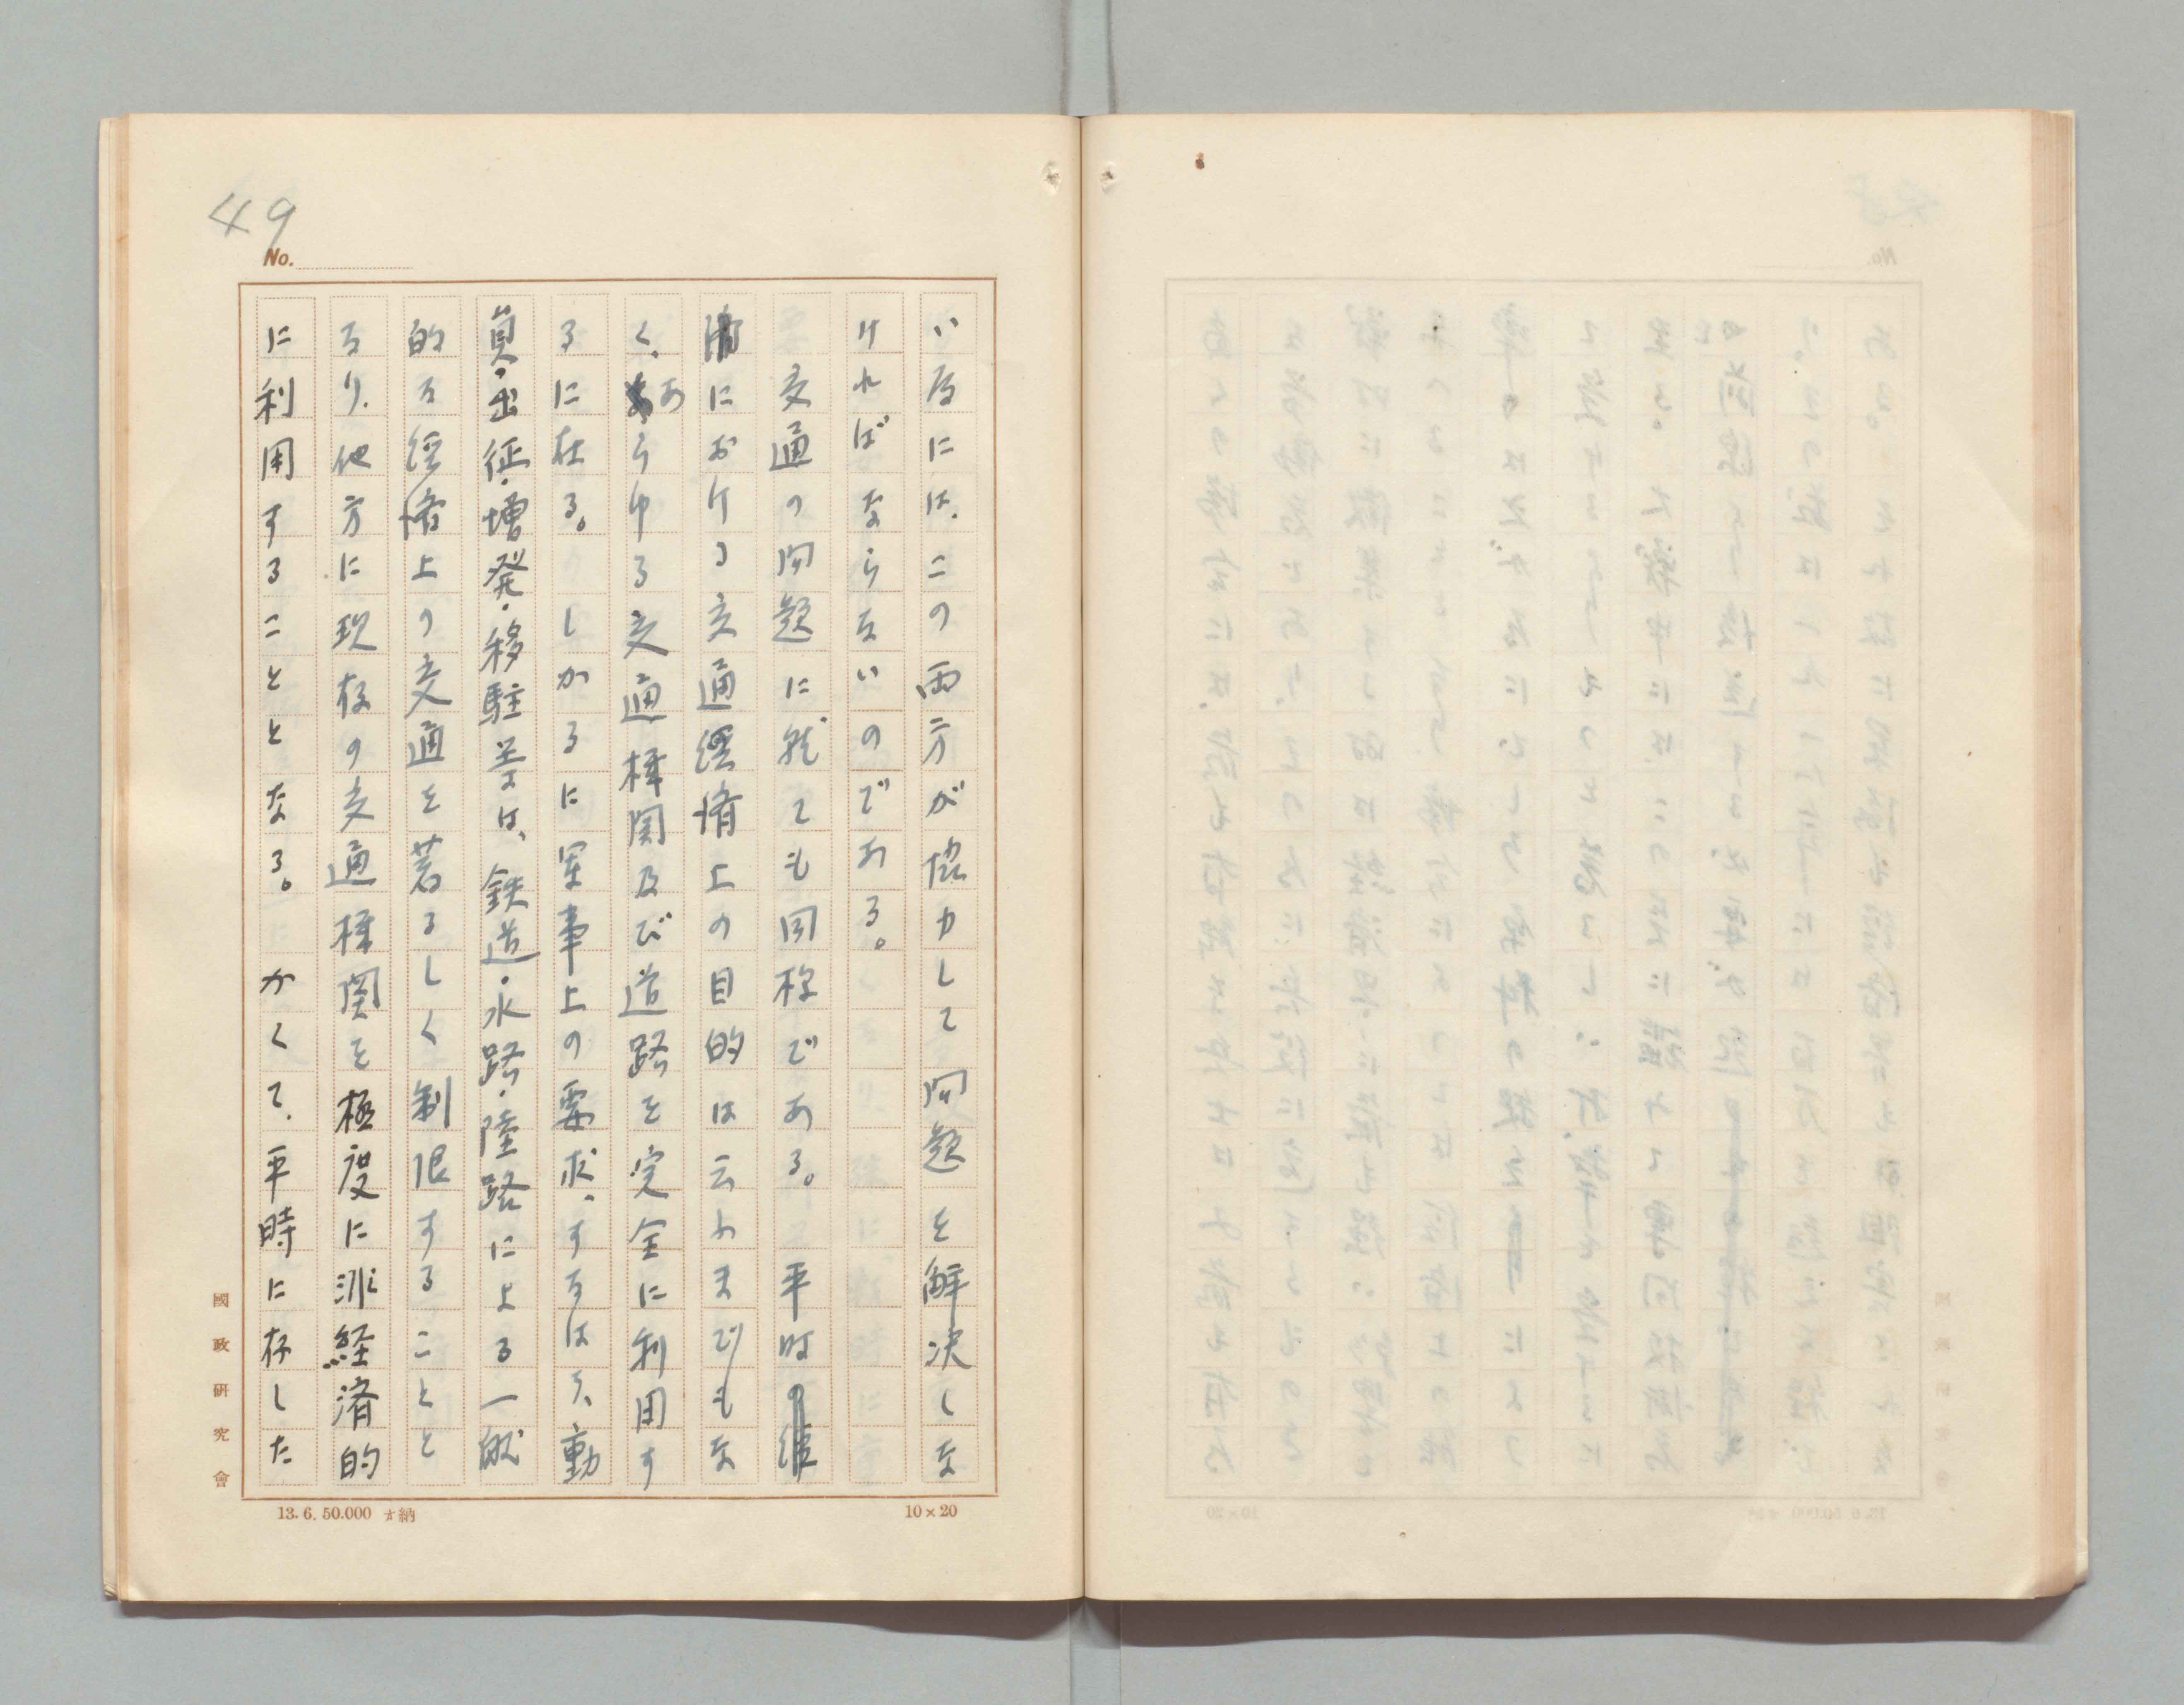 49
No.
い為には、この両方が協力して問題を解決しな
ければならないのである。
交通の問題に就ても同様である。平時の
におけるの交通経済上の目的は云わまでもな
く、あらゆる交通機関及び道路を完全に利用す
るに在る。しかるに軍事上の要求、すなはち、動
員・出征・増発・移駐等は、鉄道・水路・陸路に上る一般
的な経済上の交通を著るしく制限することと
なり、他方に現存の交通機関を極度に非経済的
に利用することとなる。かくて、平時に存した
國政研究會
13.6.50.000 納
10×20